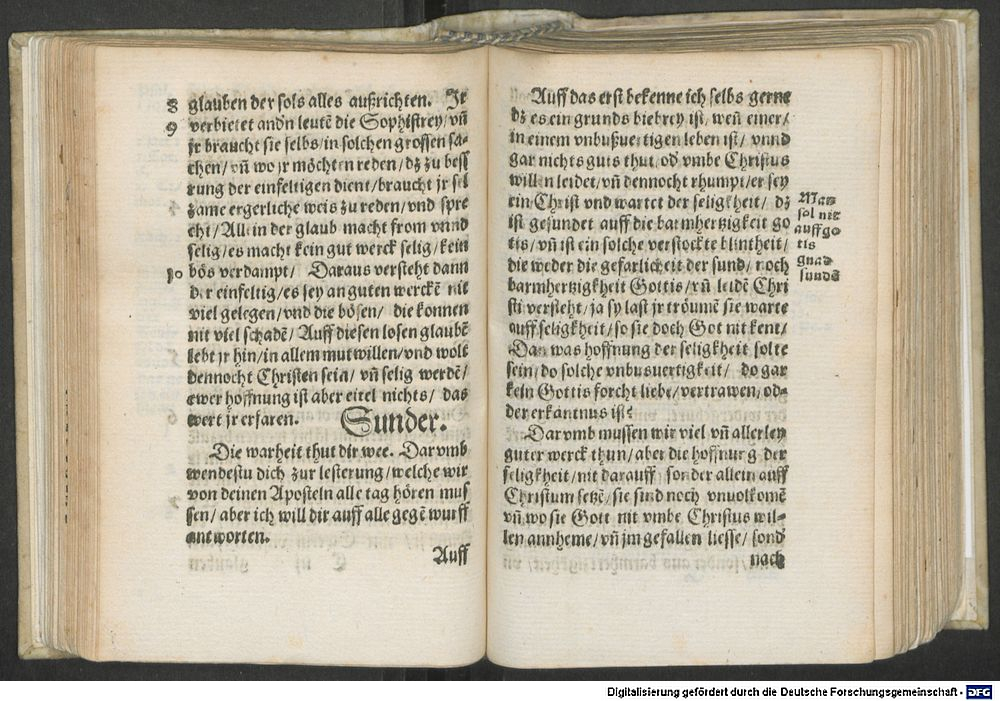 8 glauben der sols alles außrichten. Jr
9 verbietet andn leutē die Sophistrey/ vñ
jr braucht sie selbs/ in solchen grossen sa-
chen/ vñ wo jr möchten reden/ dz zu bess
rung der einfeltigen dient/ braucht jr sel
zame ergerliche weis zu reden/ vnd spre
cht/ Allein der glaub macht from vnnd
selig/ es macht kein gut werck selig/ kein
10 bös verdampt/ Daraus versteht dann
der einfeltig/ es sey an guten werckē nit
viel gelegen/ vnd die bösen/ die konnen
nit viel schadē/ Auff diesen losen glaubē
lebt jr hin/ in allem mutwillen/ vnd wolt
dennocht Christen sein/ vñ selig werdē/
ewer hoffnung ist aber eitel nichts/ das
wert jr erfaren. Sunder.
Die warheit thut dir wee. Darvmb
wendestu dich zur lesterung/ welche wir
von deinen Aposteln alle tag hören mus
sen/ aber ich will dir auff alle gegē wurff
antworten.
Auff
Auff das erst bekenne ich selbs gerne
dz es ein grunds biebrey ist, weñ einer/
in einem vnbußuertigen leben ist/ vnnd
gar nichts guts thut, od vmbe Christus
willen leidet/ vñ dennocht rhumpt/ er sey
ein Christ vnd wartet der seligkheit/ dz
ist gesundet auff die barmhertzigkeit go
tis/ vñ ist ein solche verstockte blintheit/
die weder die gefarlicheit der sund/ noch
barmhertzigkheit Gottis/ vñ leidē Chri
sti versteht/ ja sy last jr tröumē sie warte
auff seligkheit/ so sie doch Got nit kent/
Dan was hoffnung der seligkheit solte
sein/ do solche vnbusuertigkeit/ do gar
kein Gottis forcht liebe/ vertrawen/ od-
der erkantnus ist?
Darvmb mussen wir viel vñ allerley
guter werck thun/ aber die hoffnung der
seligkheit/ nit darauff/ sonder allein auff
Christum setzē/ sie sind noch vnuolkomē
vñ wo sie Gott nit vmbe Christus wil-
len annheme/ vñ jm gefallen liesse/ sond
nach
Man
sol nit
auff go
tis
gnad
sundē
Digitalisierung gefördert durch die Deutsche Forschungsgemeinschaft - DFG